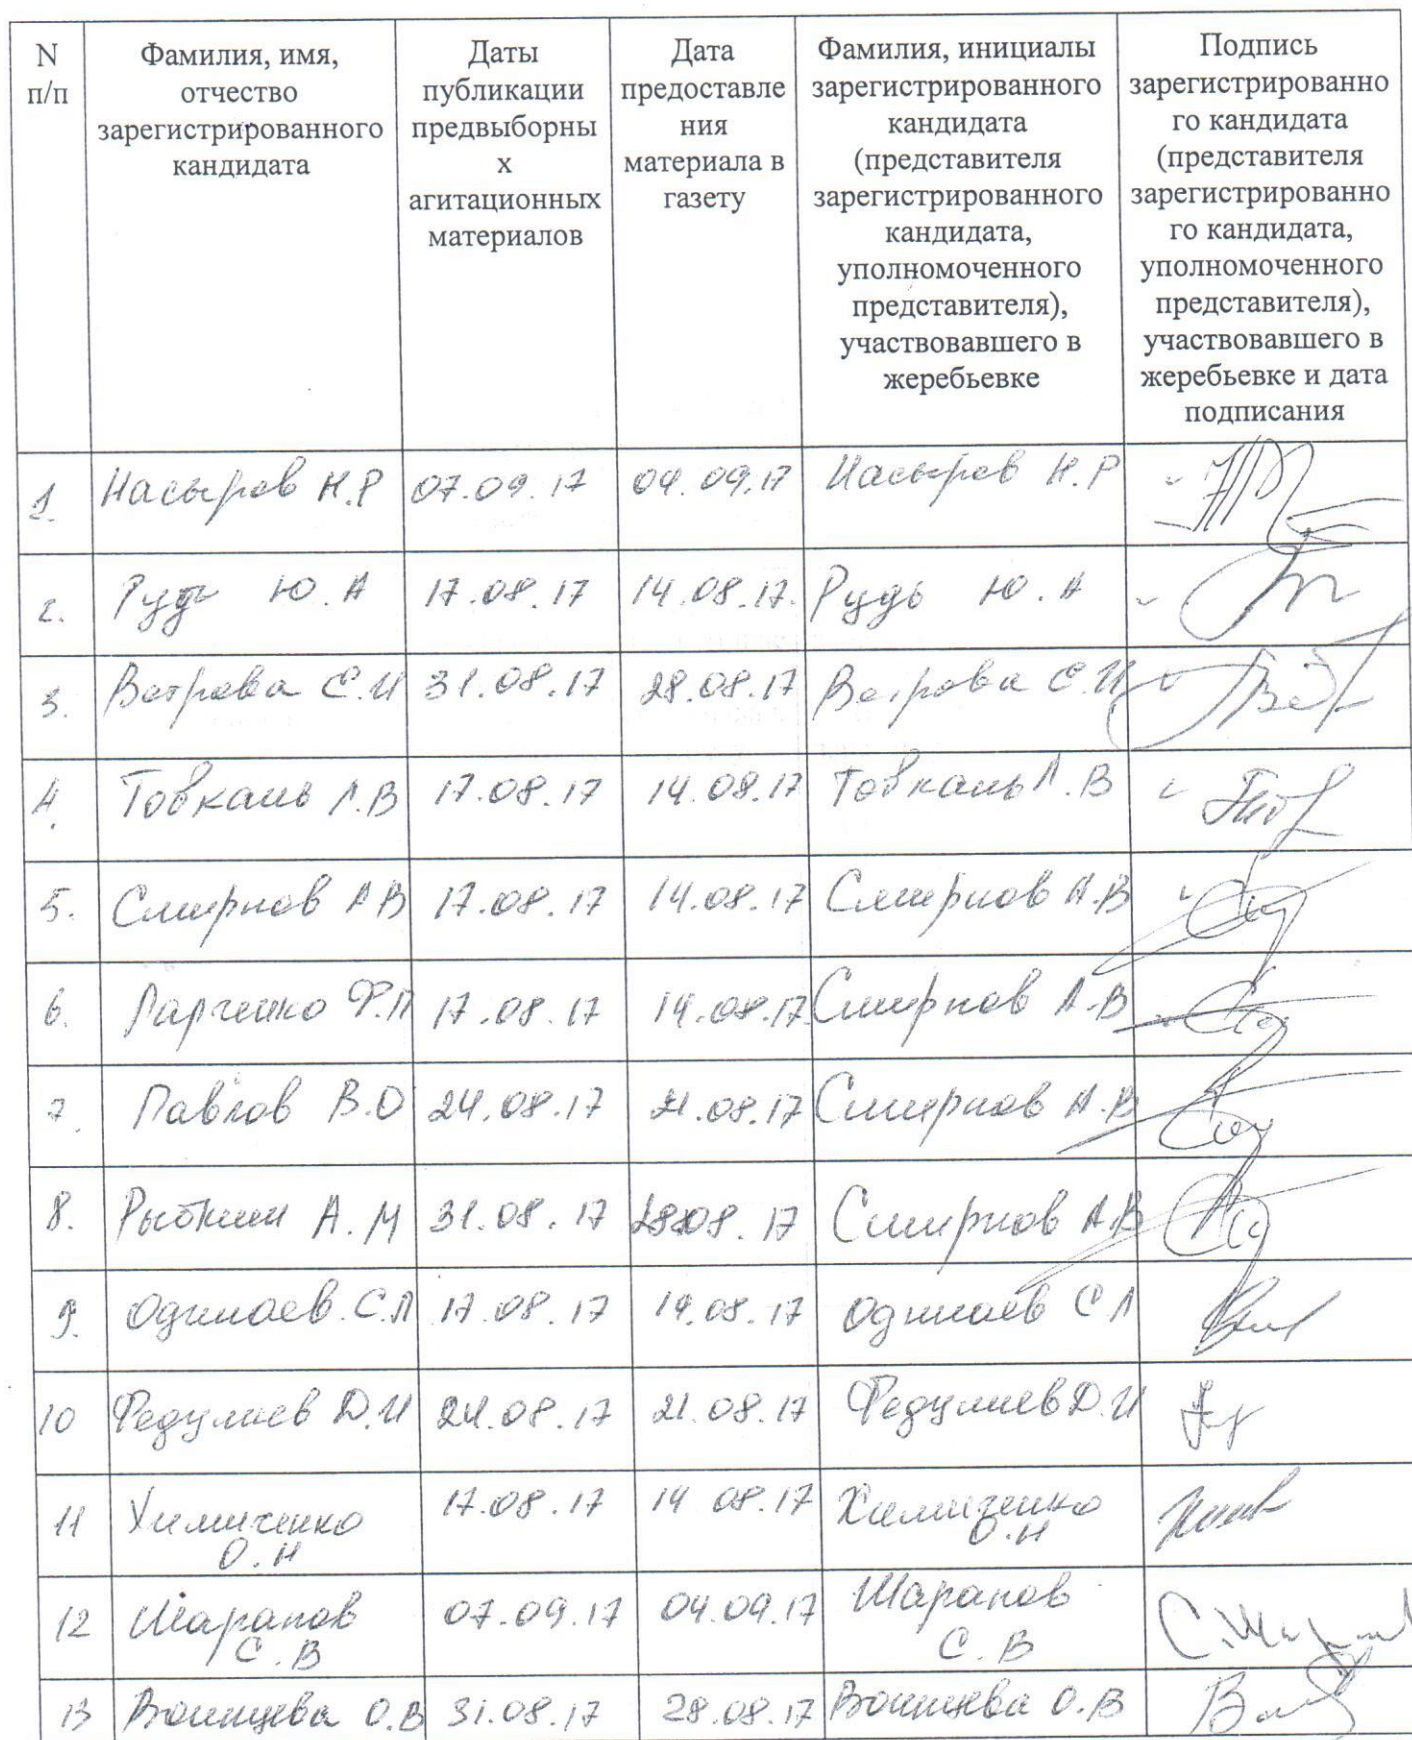 N п/п
Фамилия, имя, отчество зарегистрированного кандидата
Даты публикации предвыборны х агитационных материалов
Дата предоставле ния материала в газету
Фамилия, инициалы зарегистрированного кандидата (представителя зарегистрированного кандидата, уполномоченного представителя), участвовавшего в жеребьевке
Подпись зарегистрированно го кандидата (представителя зарегистрированно го кандидата, уполномоченного представителя), участвовавшего в жеребьевке и дата подписания
1. Насыров Н.Р 07.09.17 04.09.17 Насыров Н.Р
2. Рудь Ю.А 17.08.17 14.08.17. Рудь Ю.А
3. Ветрова С.И 31.08.17 28.08.17 Ветрова С.И
4. Товкань Л.В 17.08.17 14.08.17 Товкань Л.В
5. Смирнов АВ 17.08.17 14.08.17 Смирнов А.В
6. Ларченко Ф.П 17.08.17 14.08.17 Смирнов А.В
7. Павлов В.О 24.08.17 21.08.17 Смирнов А.В
8. Рыбкин А.М 31.08.17 28.08.17 Смирнов АВ
9. Одинаев С.Л 17.08.17 14.08.17 Одинаев С Л
10 Федуляев Д.И 24.08.17 21.08.17 Федуляев Д.И
11 Химиченко О.Н 17.08.17 14 08.17 Химиченко О.Н
12 Шарапов С.В 07.09.17 04.09.17 Шарапов С.В
13 О.В 31.08.17 28.08.17 О.В